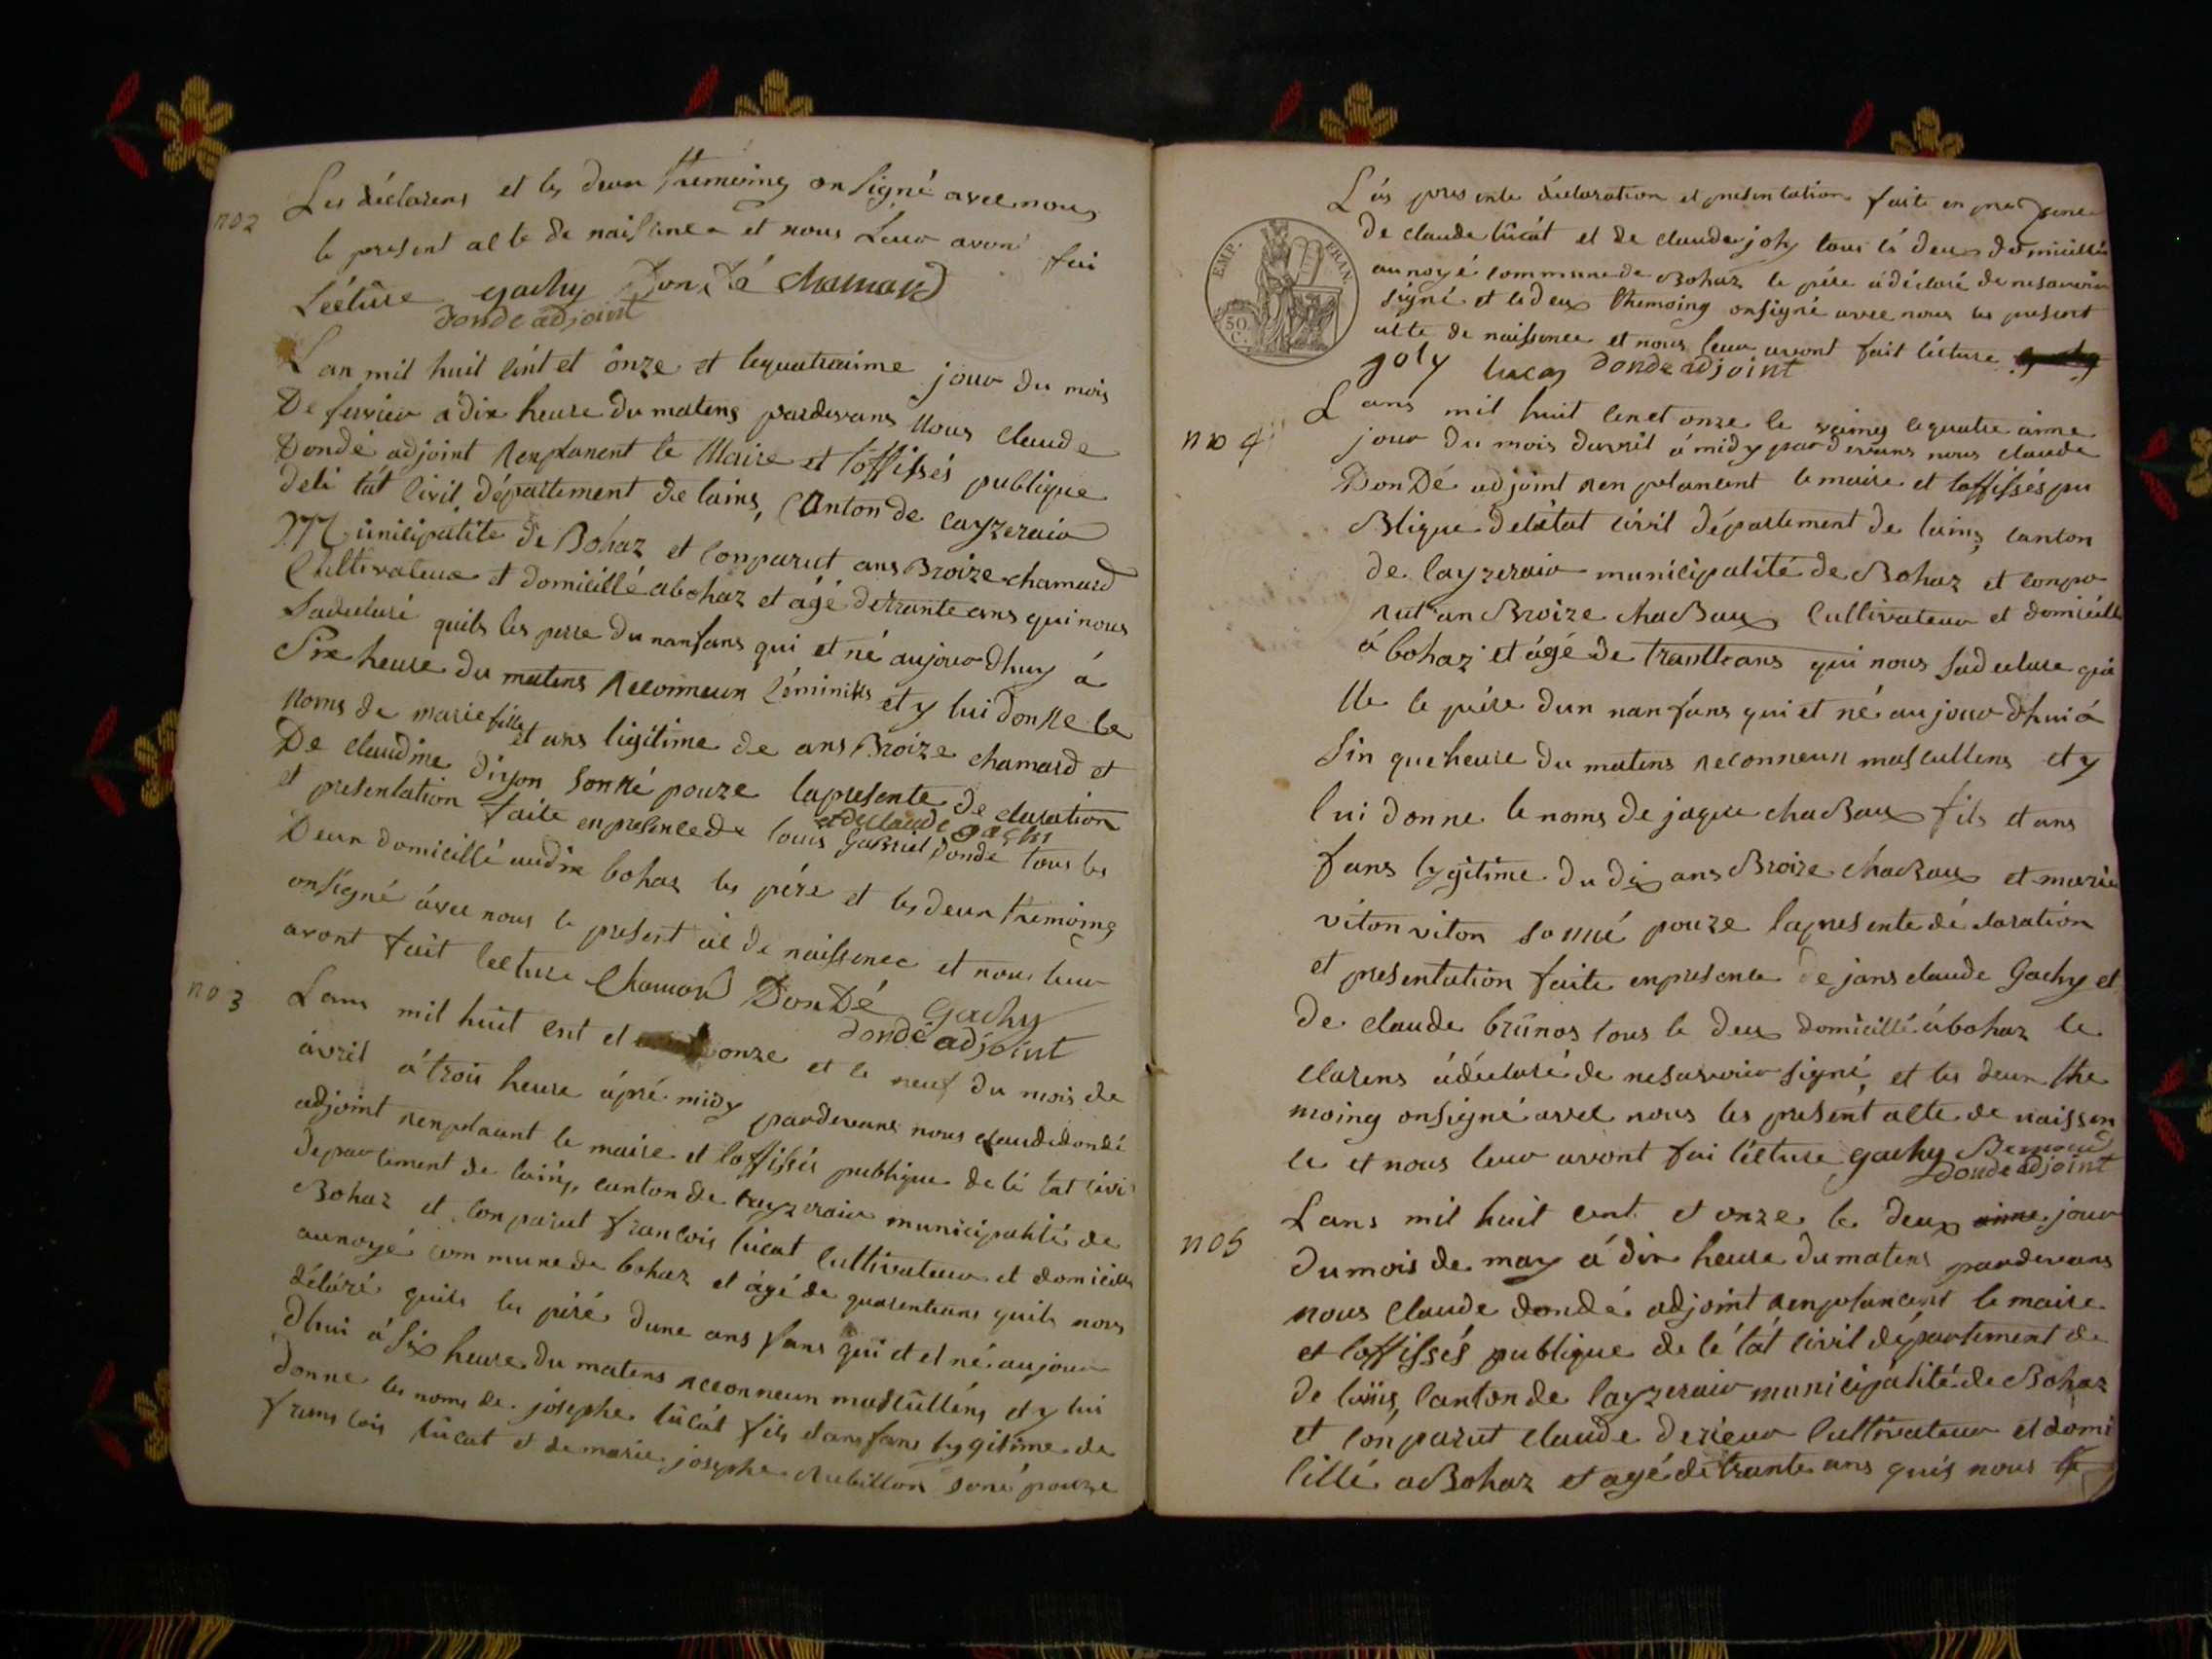 Les déclarens et les deux themoing on signé avec nous
no 2
le present acte de naissence et nous Leur avont fai
Lécture gachy Dondé chamard
donde adjoint
Lan mil huit cint et ônze et lequatraime jour du mois
De fevrier a dix heure du matens pardevans Nous claude
Dondé adjoint Renplacent le Maire et loffissés publique
deli tát Civil, département de lains, Canton de cayzeraiv
Municipalité de Bohaz et Conparut ans Broize chamard
Cultivateur et domicillé abohaz et ágé detrante ans qui nous
sadecluré quils les perre du nanfans qui et né aujourdhuy á
Six heure du matens Reconneun féminiks et y lui donne le
Noms de marie fille et ans ligitime de ans Broize chamard et
De claudine dijon sonné pouze lapresente de claration
et presentation faite en presence de louis Gabriel Donde tous les
et de claude gachi
Deux domicillé audix bohas les pére et les deux themoing
onsigné ávec nous le present ac de naissence et nous leur
avont fait lecture Chamard DonDé Gachy
donde adjoint
no 3
Lans mil huit cent et onze et le neuf du mois de
ávril á trois heure ápré midy pardevans nous claude dondé
adjoint renplacent le maire et loffissés publique de lé tat civi
departement de lains, canton de cayzeraiv municipalité de
Bohaz et Conparut francois lucat Cultivateur et domicillé
aunoyé commune de bohaz et ágé de quarenteans quils nous
décluré quils les péré dune ans fans qui et et né aujour
dhui á six heure du matens reconneun mascullens et y lui
donne les noms de josephe lucát fils et ans fans lygitime de
francois lucat et de marie josephe Rubillon soné pouze
Lás presente déclaration et presentation faite en presence
De claude lûcát et de claude joly tous lé deux domicillé
EMP. FRAN.
50 C.
aunoyé commune de Bohaz le pére ádécluré de nesavoir
signé et le deux themoing onsigné avec nous les present
acte de naissence et nous leur avont fait lécture
joly lucas donde adjoint
no 4
Lans mil huit cenet onze le vaimg lequatre aime
jour du mois davril á midy par devans nous claude
DonDé adjoint Ren placent le maire et loffissés pu
Blique delétat civil département de lains, canton
de Cayzeraiv municipalité de Bohaz et conpa
rut an Broize chaBaux Cultivateur et domicillé
á bohaz et ágé de tranteans qui nous sadeclure qui
lle le peire dun nanfans qui et né aujourdhui á
sin que heure du matens reconneun mascullens et y
lui donne le noms de jaque chaBaux fils et ans
fans lygitime du dix ans Broize chaBaux et marie
viton viton sonné pouze lapresente dé claration
et presentation faite enpresence de jans claude Gachy et
de claude brunos tous le deux domicillé ábohaz le
clarens ádécluré de nesavoir signé, et les deux the
moing onsigné avec nous les present acte de naissen
ce et nous leur avont fai lécture gachy
donde adjoint
no 5
Lans mil huit cent et onze le deux aime jour
Dumois de may á dix heure du matens pardevans
nous Claude dondé adjoint Renplancent le maire
et loffissés publique de lé tát civil département de
de lains, Canton de Cayzeraiv municipálité de Bohaz
et Conparut claude derieur Cultivateur et domi
cillé aBohaz et agé detrante ans quis nous